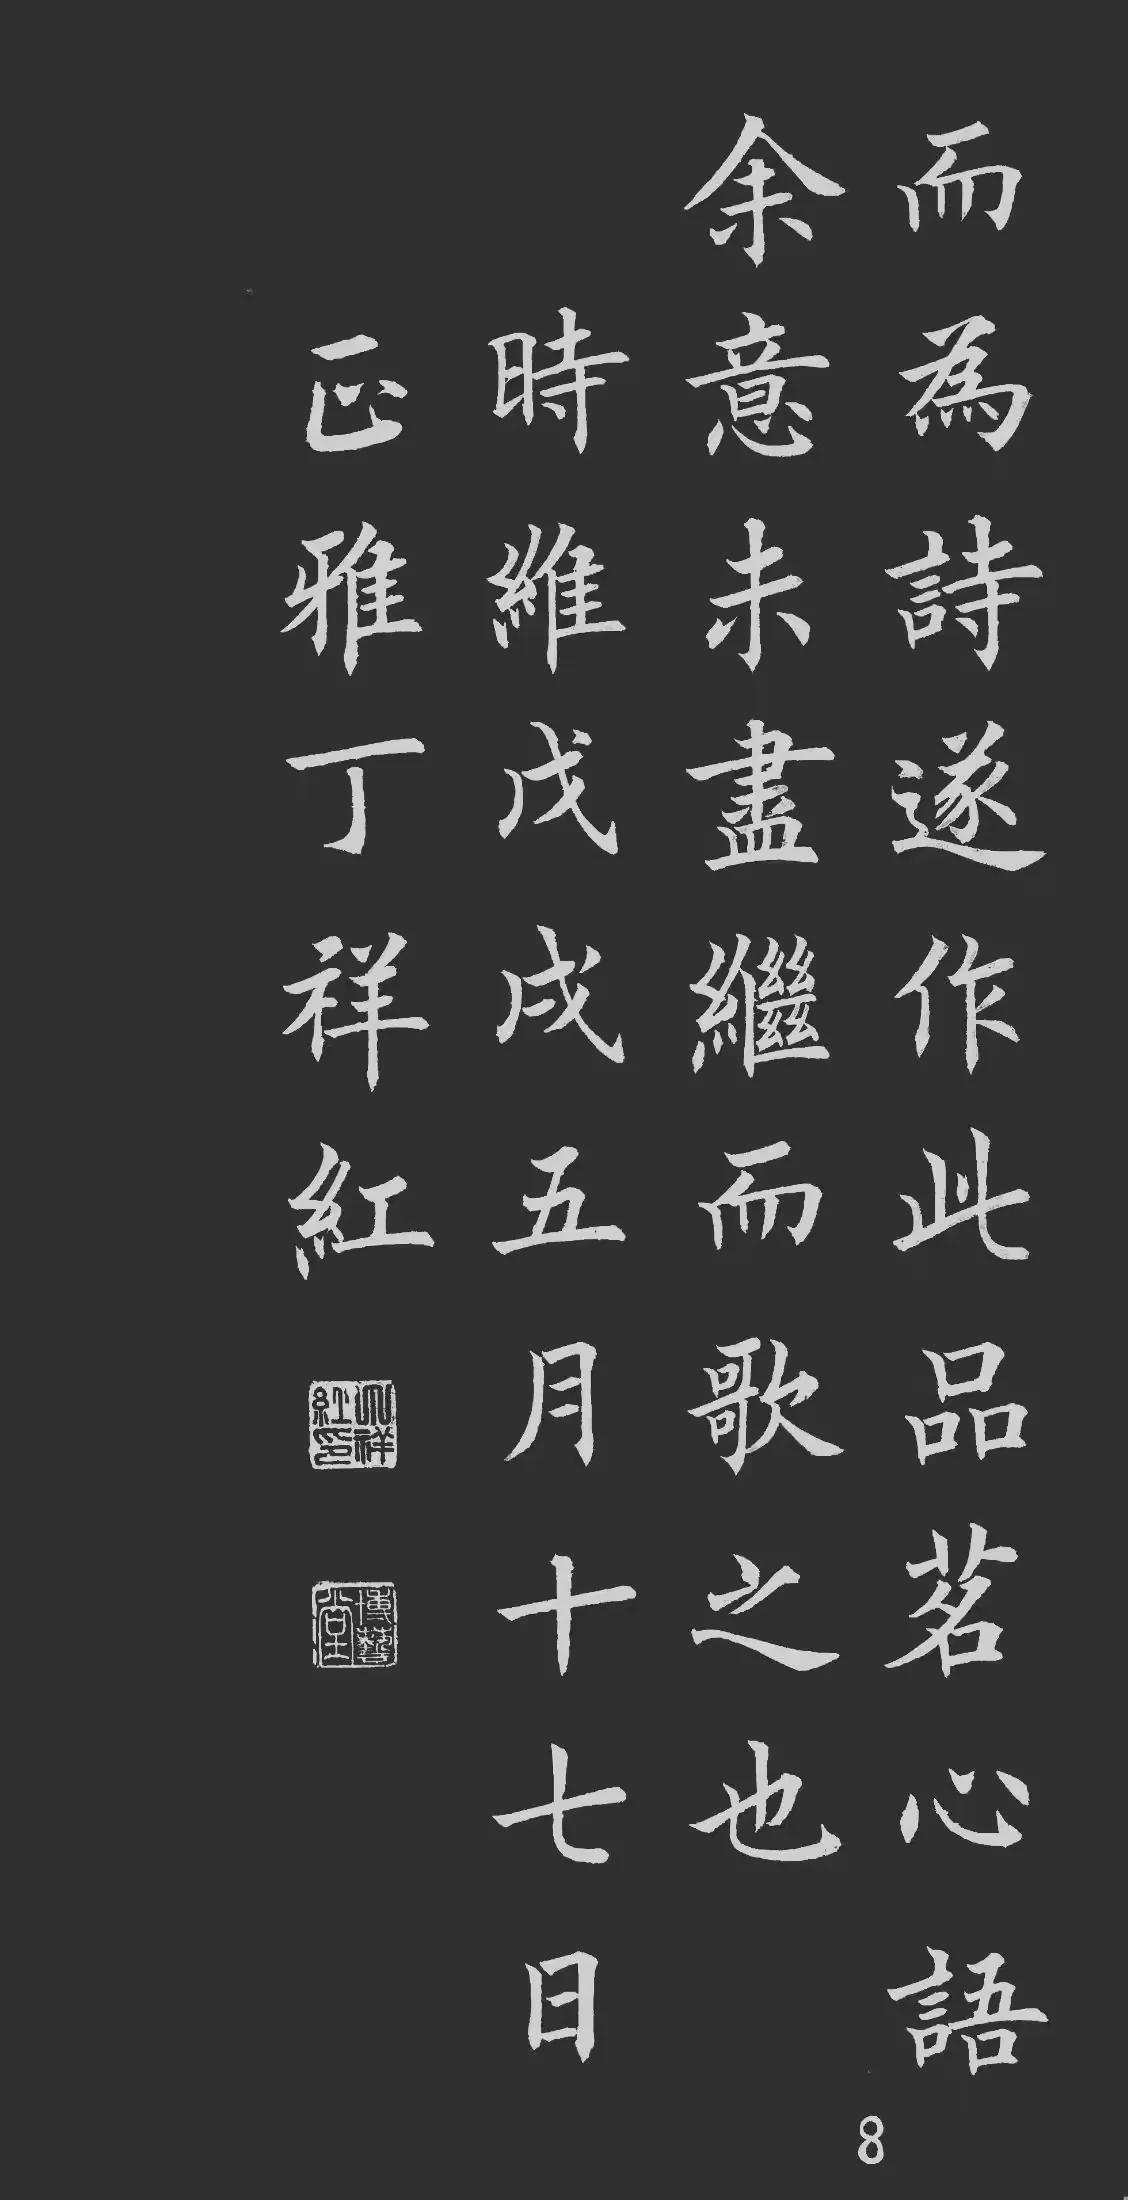 而為詩遂作此品茗心語
余意未盡繼而歌之也
時維戊戌五月十七日
正雅丁祥紅
丁祥紅印
博藝堂
8